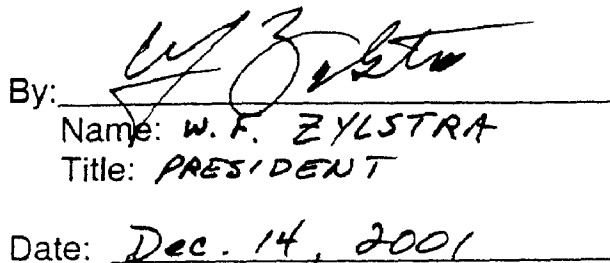 By:
Name: W. F. ZYLSTRA
Title: PRESIDENT
Date: Dec. 14, 2001